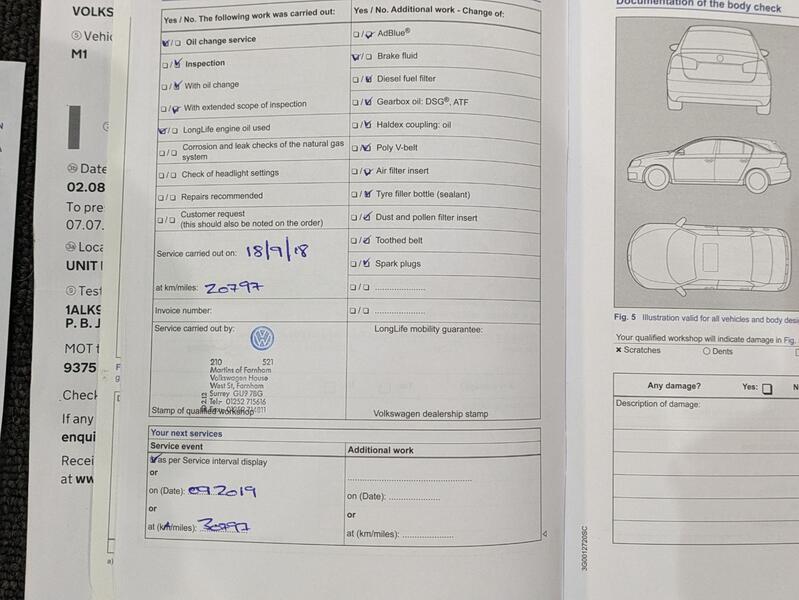 VOLKS
M1
02.08
To pre
07.07.
UNIT
1ALK9
P. B. J
MOT t
9375
Check
If any
enqui
Recei
at ww
Yes / No. The following work was carried out:
☑/☐ Oil change service
☐/☑ Inspection
☐/☑ With oil change
☐/☑ With extended scope of inspection
☑/☐ LongLife engine oil used
☐/☐ Corrosion and leak checks of the natural gas
system
☐/☐ Check of headlight settings
☐/☐ Repairs recommended
☐/☐ Customer request
(this should also be noted on the order)
Service carried out on: 18/9/18
at km/miles: 20797
Invoice number:
Service carried out by:
210 521
Martins of Farnham
Volkswagen House
West St, Farnham
Surrey GU9 7BG
Tel:- 01252 715616
Stamp of qualified workshop
Yes / No. Additional work - Change of:
☐/☑ AdBlue®
☑/☐ Brake fluid
☐/☑ Diesel fuel filter
☐/☑ Gearbox oil: DSG®, ATF
☐/☑ Haldex coupling: oil
☐/☑ Poly V-belt
☐/☑ Air filter insert
☐/☑ Tyre filler bottle (sealant)
☐/☑ Dust and pollen filter insert
☐/☑ Toothed belt
☐/☑ Spark plugs
☐/☐ ......................
☐/☐ ......................
LongLife mobility guarantee:
Volkswagen dealership stamp
Your next services
Service event
☑ as per Service interval display
or
on (Date): 09.2019
or
at (km/miles): 30797
Additional work
on (Date): ................
or
at (km/miles): ................
a)
Documentation of the body check
Fig. 5 Illustration valid for all vehicles and body desi
Your qualified workshop will indicate damage in Fig.
× Scratches ○ Dents
Any damage? Yes: ☐ N
Description of damage:
3G0012720SC